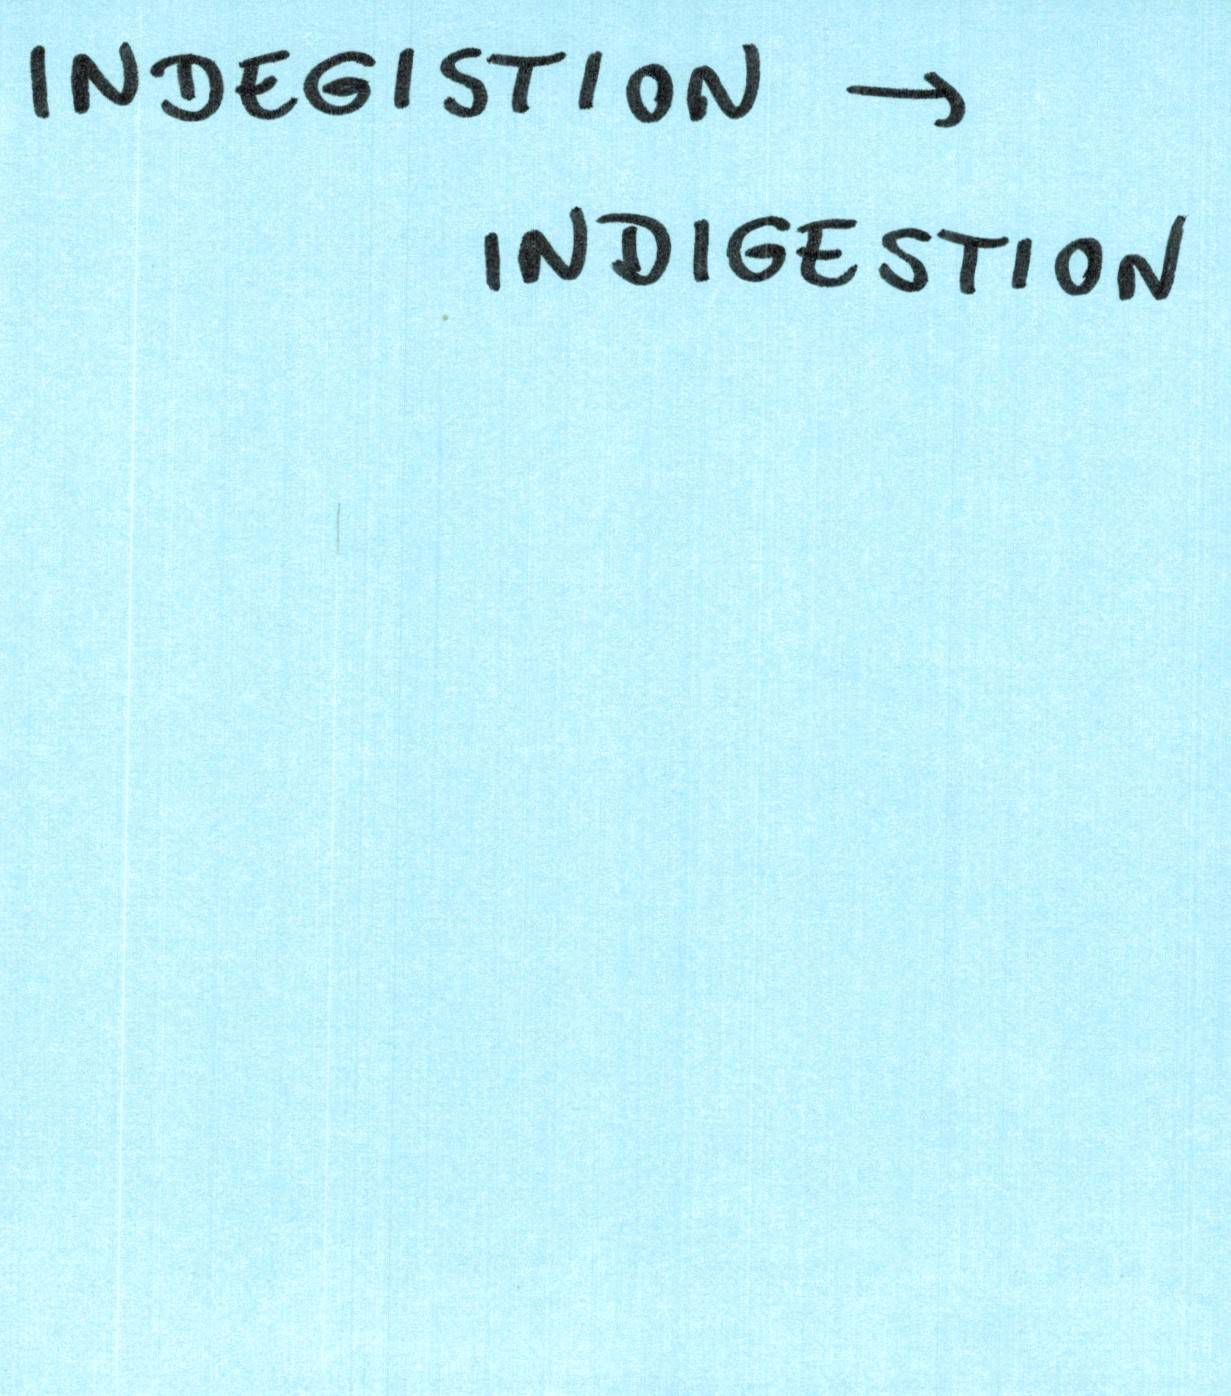 INDEGISTION →
INDIGESTION